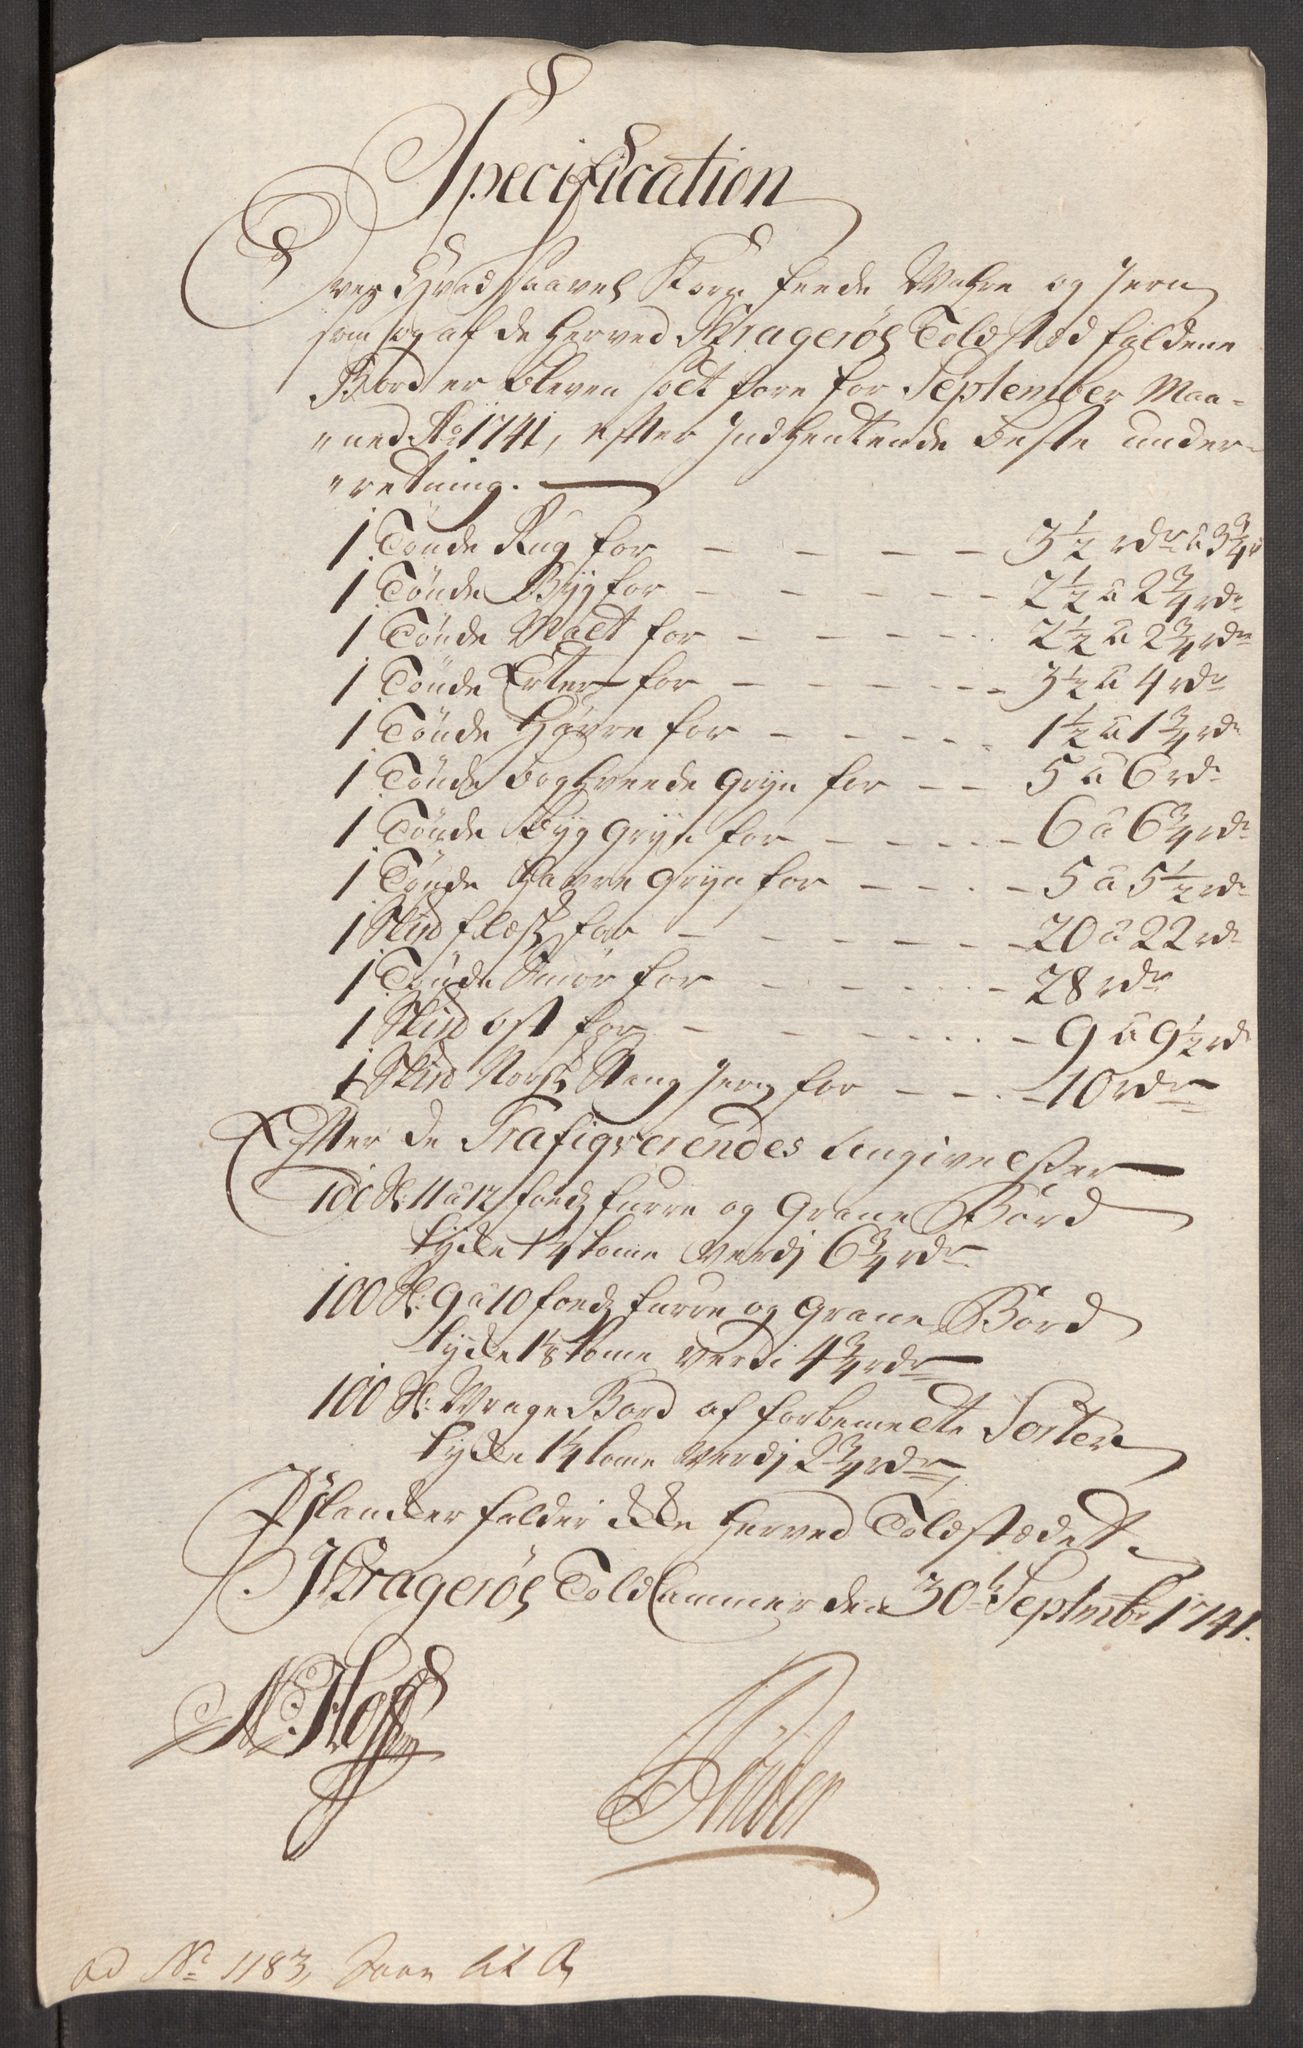 Specification
Over Hvad saavel Korn feede Vahre og Jern
som og af de herved Kragerøes Toldsted faldene
Bord er bleven solt fore for September Maa-
"ned Ao 1741, efter Indhentende beste under-
"retning.
1 Tønde Rug for - - - - - 3½ rdr a 3¾
1 Tønde Byg for - - - - - 2½ a 2¾ rdr
1 Tønde Malt for - - - - - 2½ a 2¾ rdr
1 Tønde Erter for - - - - - 3½ a 4 rdr
1 Tønde Havre for - - - - - 1½ a 1¾ rdr
1 Tønde boghveede gryn for - - 5 a 6 rdr
1 Tønde Byg gryn for - - - - 6 a 6¾ rdr
1 Tønde Havre gryn for - - - - 5 a 5½ rdr
1 Skud flesk for - - - - - - 20 a 22 rdr
1 Tønde Smør for - - - - - 28 rdr
1 Skud ost for - - - - - - 9 a 9½ rd
1 Skud Norsk Stang Jern for - - - 10 rdr
Efter de Trafiqverendes Angivelser
100 St: 11 a 12 foed furre og Grane Bord
tycke 1¼ tome verdj 6¾ rdr
100 St: 9 a 10 foed furre og Grane Bord
tycke 1⅛ tome verdi 4¾ rdr
100 St: Vrage Bord af forbemelte Sorter
tycke 1¼ tome verdj 2¾ rdr
Plancker falder icke herved Toldstædet
Kragerøes Told Cammer den 30te Septembr 1741.
N. Hoff
ad No 1183,